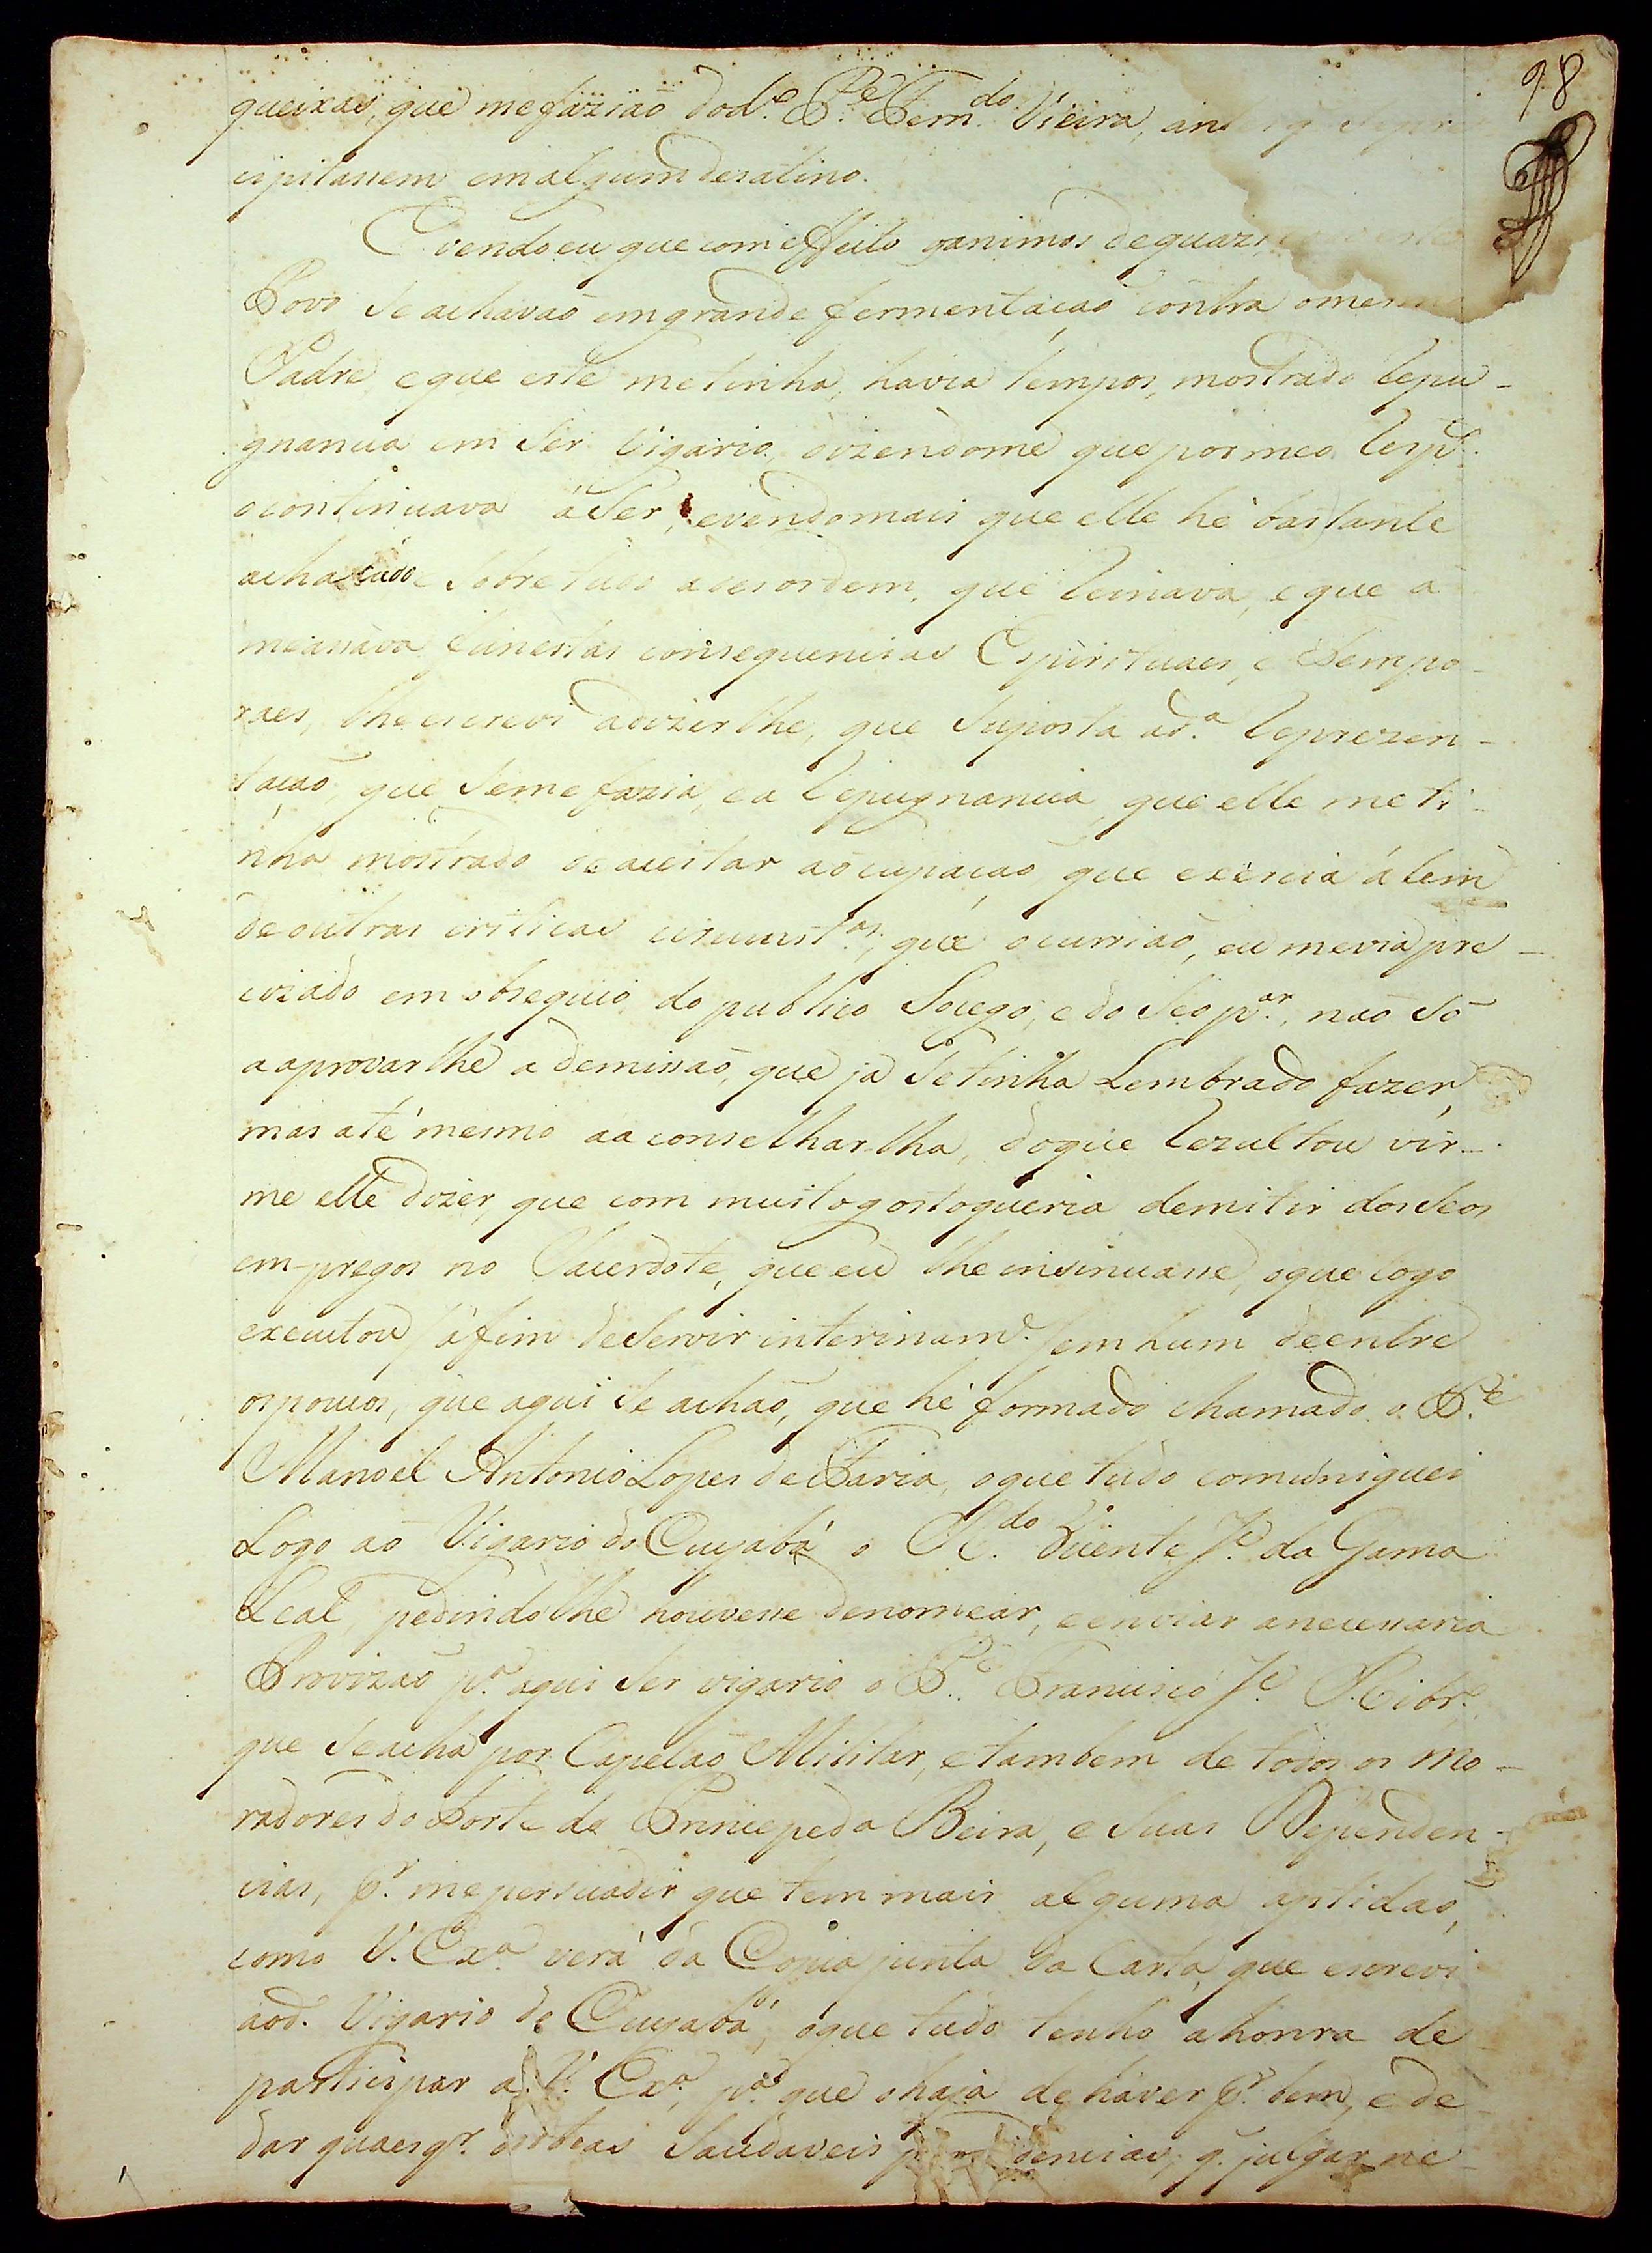 98
queixas, que me fazião do d.º P.e Fern.do Vieira, an
cipitassem em algum desatino.
E vendo eu que com effeito os animos de quazi
Povo se achavão em grande fermentação contra o mes
Padre e que este me tinha, havia tempos, mostrado repu-
gnancia em ser Vigario, dizendome que por meo resp.to
o continuava á ser, e vendo mais que elle hé bastante
achacado e sobre tudo a desordem, que reinava, e que a
meassava funestas consequencias Espirituaes, e Tempo-
raes, lhe escrevi a dizer lhe, que suposta a d.a reprezen-
tação, que se me fazia, e a repugnancia, que elle me ti-
nha mostrado de aceitar a ocupação que exercia álem
de outras criticas circunst.as, que ocurrião, eu me via pre-
cizado em obsequio do publico socego, e do seo p.ar, não só
a aprovar lhe a demissão, que ja se tinha Lembrado fazer,
mas até mesmo a aconselhar lha, do que rezultou vir-
me elle dizer, que com muito gosto queria demitir dos seos
empregos no Sacerdote, que eu lhe insinuasse, o que logo
executou /á fim de servir interinam.e/ em hum de entre
os poucos, que aqui se achão, que hé formado chamado o P.e
Manoel Antonio Lopes de Faria, o que tudo comuniquei
Logo ao Vigario do Cuyabá o R.do Vicente J.e da Gama
Leal, pedindo lhe houvesse de nomear, e enviar a necessaria
Provizão p.a aqui ser vigario o P.e Francisco J.e Ribr.o
que se acha por Capelão Militar, e tambem de todos os mo-
radores do Forte do Principe da Beira, e suas Dependen-
cias, p.r me persuadir que tem mais alguma aptidão,
como V. Ex.a verá da Copia junta da Carta, que escrevi
ao d.º Vigario do Cuyabá, o que tudo tenho a honra de
participar a V. Ex.a, p.a que o haja de haver p.r bem, e de
dar quaesq.r outras saudaveis providencias, q. julgar ne-